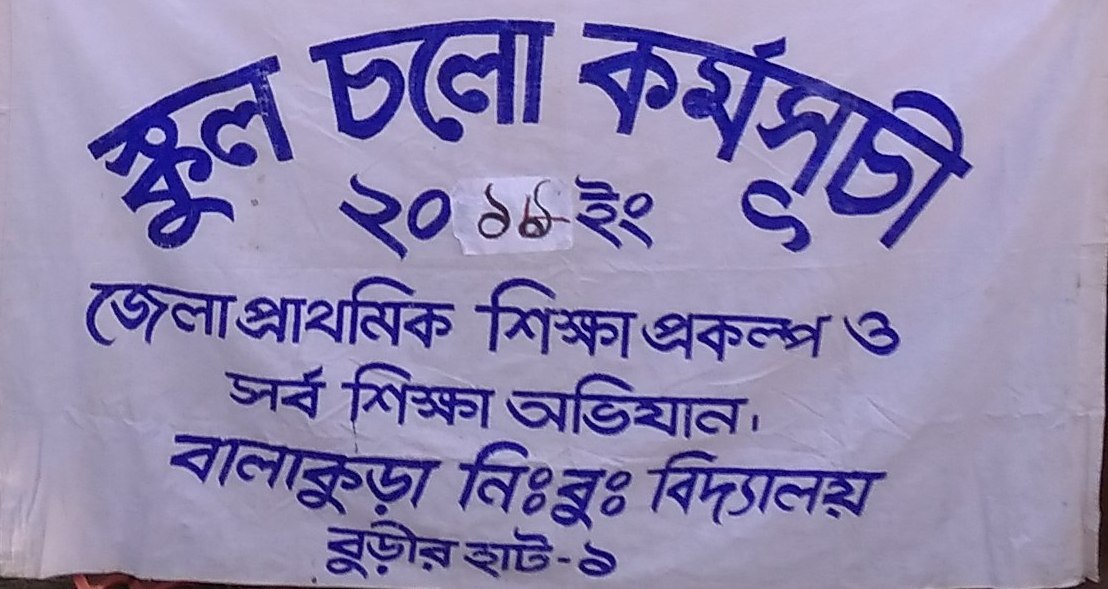 স্কুল চলো কর্মসূচী
২০১৬ ইং
জেলা প্রাথমিক শিক্ষা প্রকল্প ও
সর্ব শিক্ষা অভিযান।
বালাকুড়া নিঃবুঃ বিদ্যালয়
বুড়ীর হাট-১